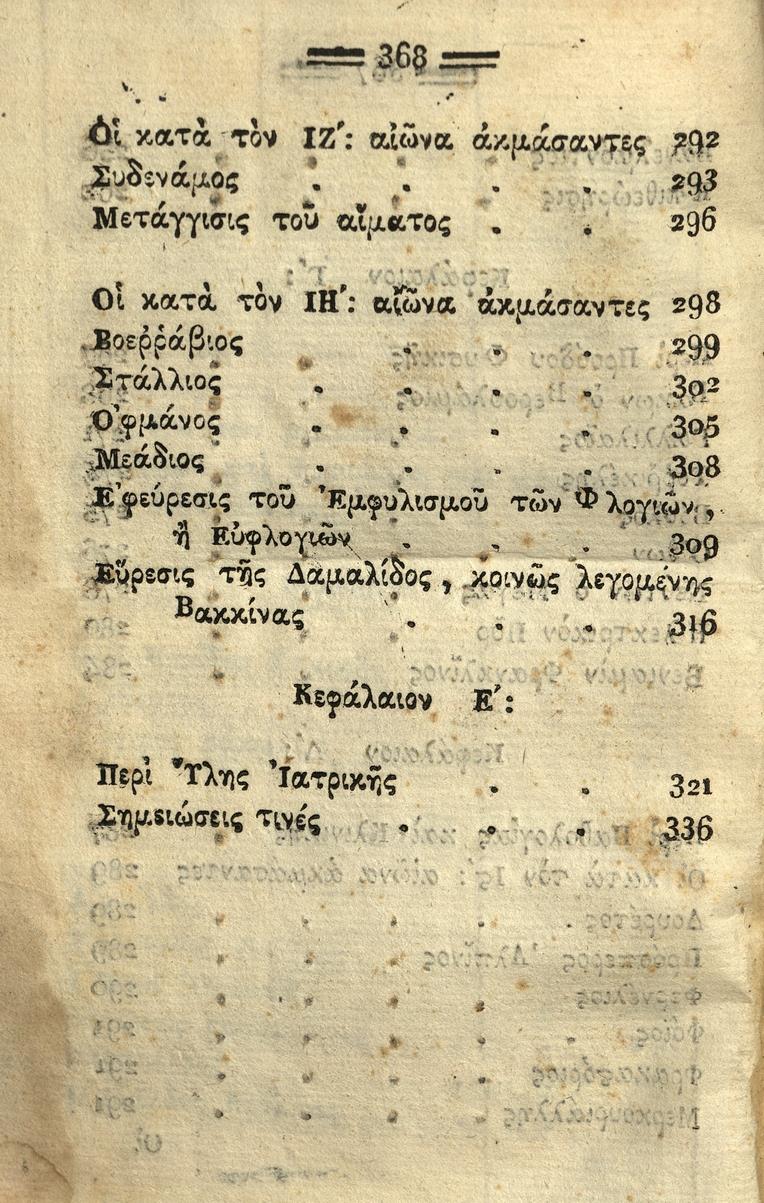 368
Οἱ κατὰ τὸν ΙΖ′: αἰῶνα ἀκμάσαντες 292
Συδενάμος . . . . 293
Μετάγγισις τοῦ αἵματος . . 296
Οἱ κατὰ τὸν ΙΗ′: αἰῶνα ἀκμάσαντες 298
Βοεῤῥάβιος . . . 299
Στάλλιος . . . . 302
Ὀφμάνος . . . . 305
Μεάδιος . . . . 308
Ἐφεύρεσις τοῦ Ἐμφυλισμοῦ τῶν Φλογιῶν,
ἢ Εὐφλογιῶν . . . 309
Εὕρεσις τῆς Δαμαλίδος, κοινῶς λεγομένης
Βακκίνας . . . 316
Κεφάλαιον Ε′:
Περὶ Ὕλης Ἰατρικῆς . . 321
Σημειώσεις τινές . . . 336